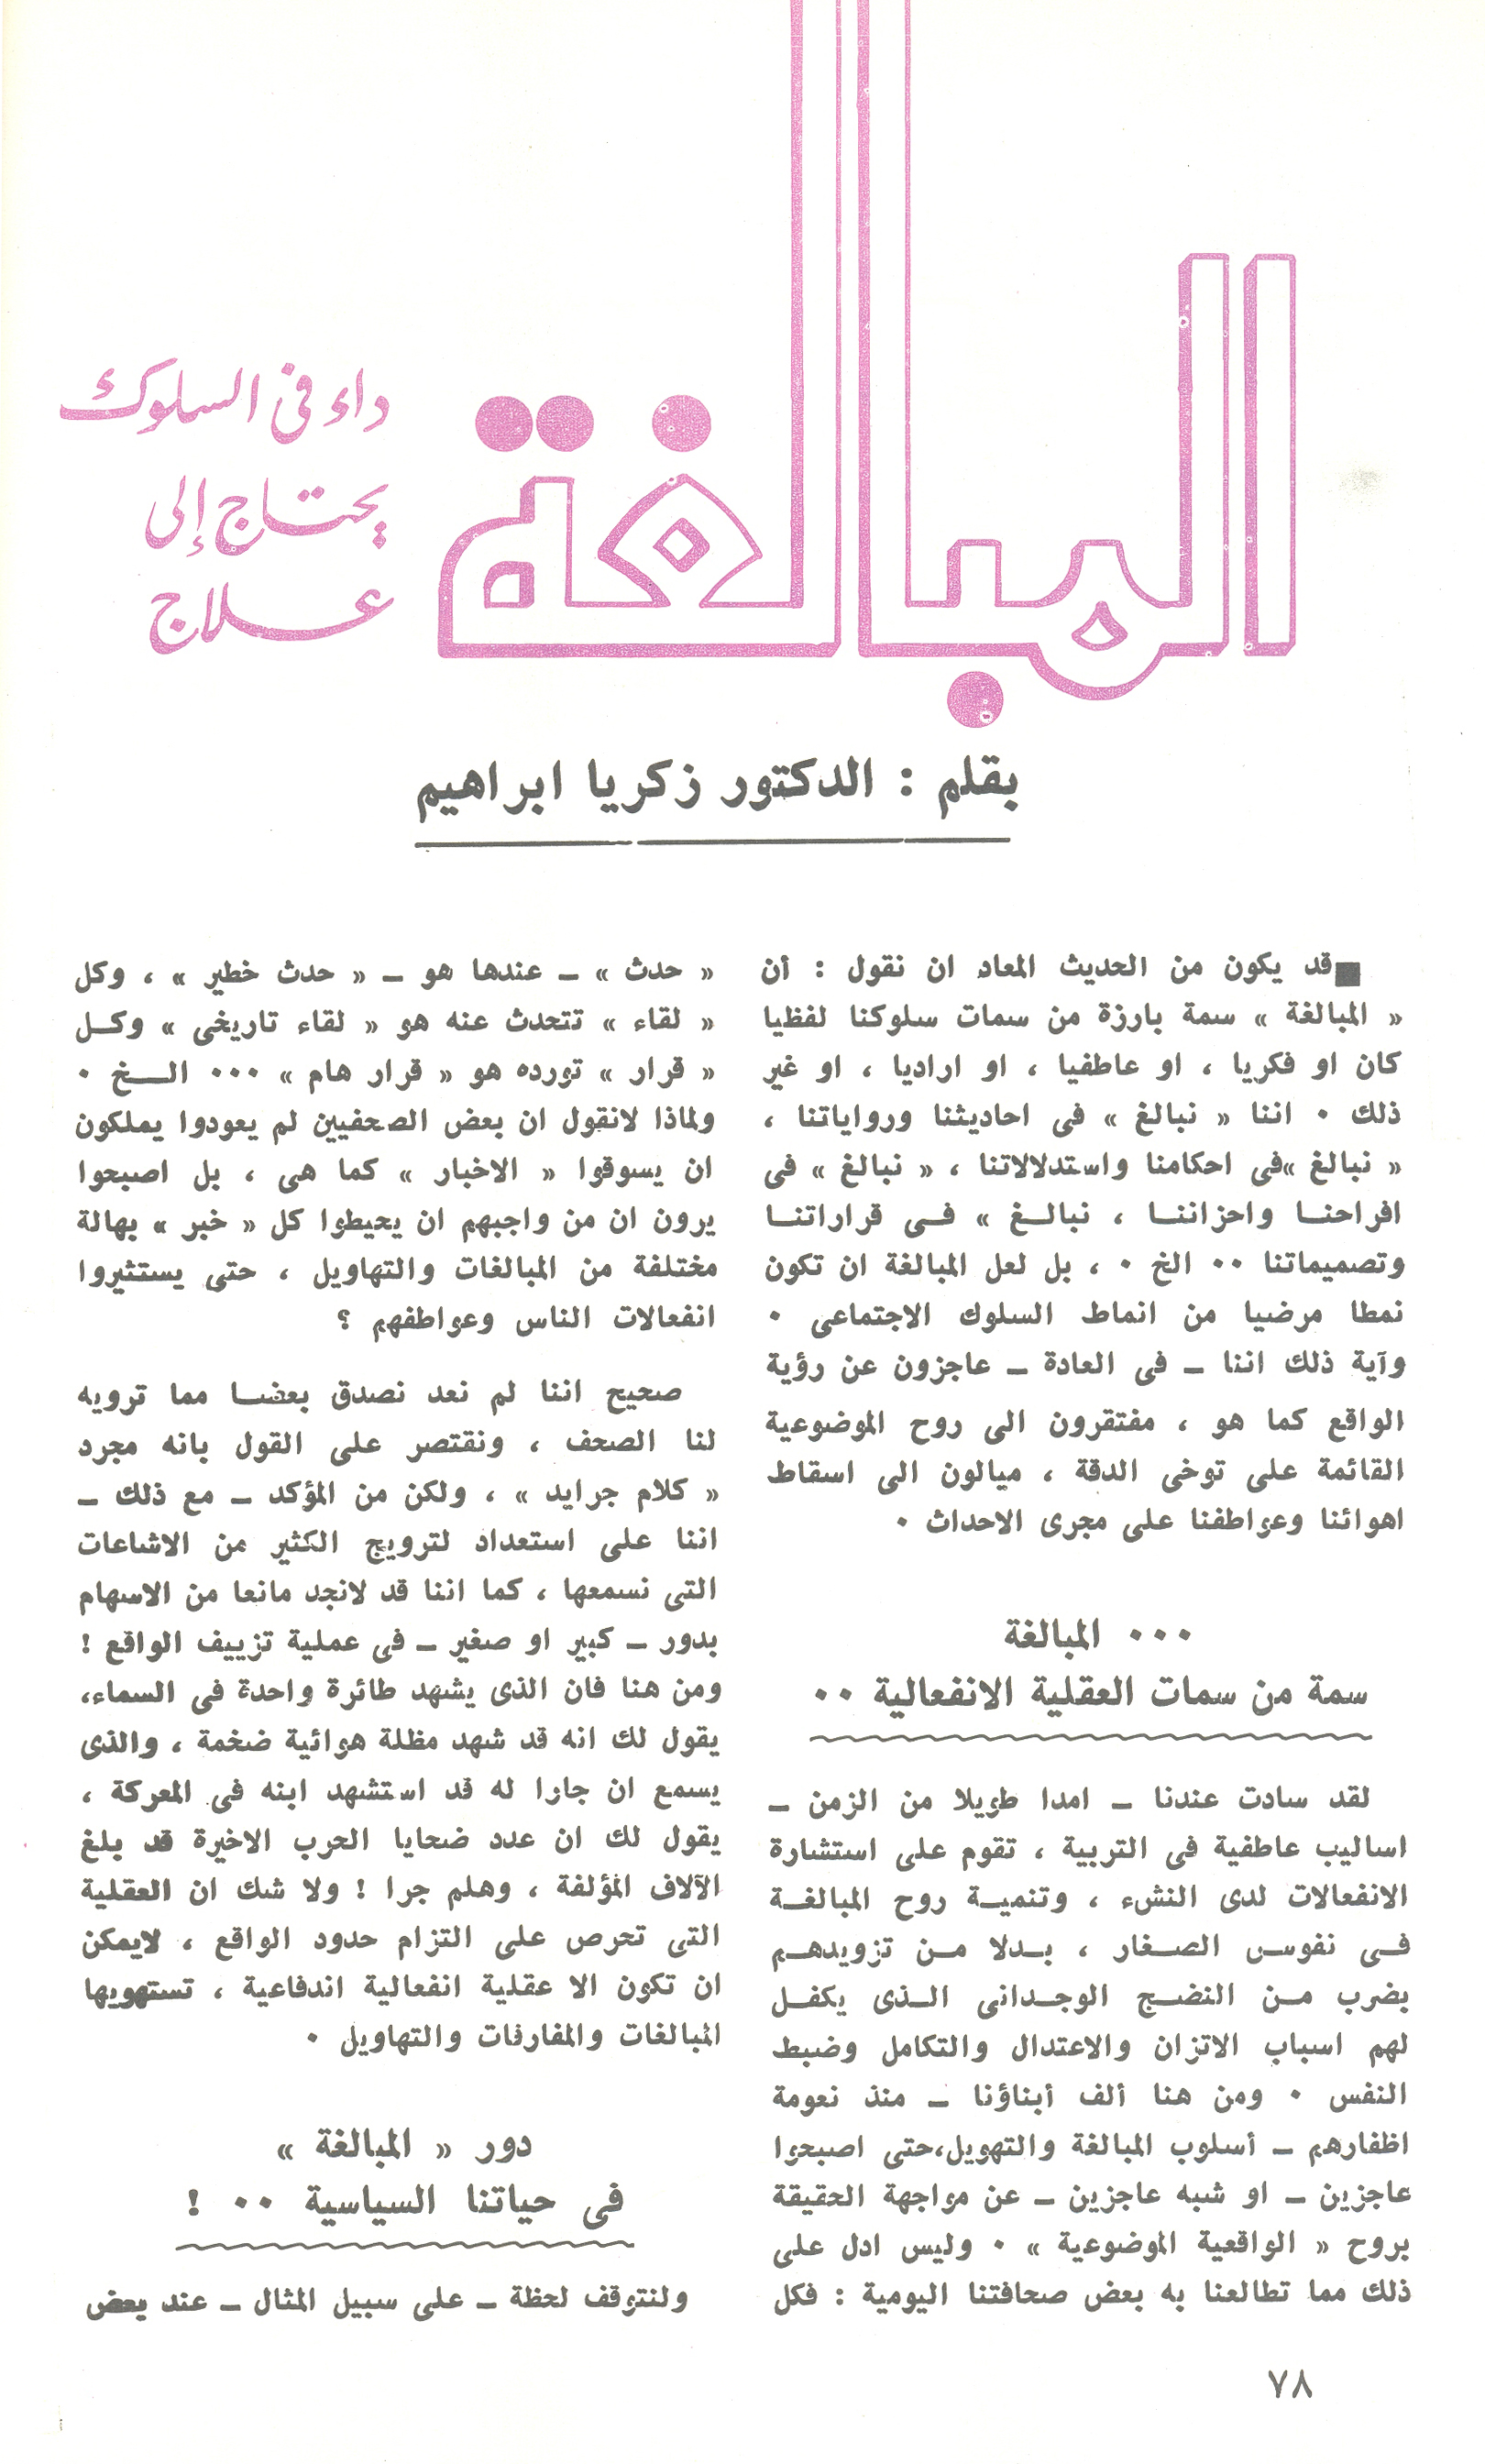 المبالغة
داء فى السلوك
يحتاج إلى
علاج
بقلم : الدكتور زكريا ابراهيم
قد يكون من الحديث المعاد ان نقول : أن
« المبالغة » سمة بارزة من سمات سلوكنا لفظيا
كان او فكريا ، او عاطفيا ، او اراديا ، او غير
ذلك ٠ اننا « نبالغ » فى احاديثنا ورواياتنا ،
« نبالغ »فى احكامنا واستدلالاتنا ، « نبالغ » فى
افراحنا واحزاننا ، نبالغ » فى قراراتنا
وتصميماتنا ٠٠ الخ ٠ ، بل لعل المبالغة ان تكون
نمطا مرضيا من انماط السلوك الاجتماعى ٠
وآية ذلك اننا ــ فى العادة ــ عاجزون عن رؤية
الواقع كما هو ، مفتقرون الى روح الموضوعية
القائمة على توخى الدقة ، ميالون الى اسقاط
اهوائنا وعواطفنا على مجرى الاحداث ٠
٠٠٠ المبالغة
سمة من سمات العقلية الانفعالية ٠٠
لقد سادت عندنا ــ امدا طويلا من الزمن ــ
اساليب عاطفية فى التربية ، تقوم على استشارة
الانفعالات لدى النشء ، وتنمية روح المبالغة
فى نفوس الصغار ، بدلا من تزويدهم
بضرب من النضج الوجدانى الذى يكفل
لهم اسباب الاتزان والاعتدال والتكامل وضبط
النفس ٠ ومن هنا ألف أبناؤنا ــ منذ نعومة
اظفارهم ــ أسلوب المبالغة والتهويل،حتى اصبحوا
عاجزين ــ او شبه عاجزين ــ عن مواجهة الحقيقة
بروح « الواقعية الموضوعية » ٠ وليس ادل على
ذلك مما تطالعنا به بعض صحافتنا اليومية : فكل
« حدث » ــ عندها هو ــ « حدث خطير » ، وكل
« لقاء » تتحدث عنه هو « لقاء تاريخى » وكل
« قرار » تورده هو « قرار هام » ٠٠٠ الخ ٠
ولماذا لانقول ان بعض الصحفيين لم يعودوا يملكون
ان يسوقوا « الاخبار » كما هى ، بل اصبحوا
يرون ان من واجبهم ان يحيطوا كل « خبر » بهالة
مختلفة من المبالغات والتهاويل ، حتى يستثيروا
انفعالات الناس وعواطفهم ؟
صحيح اننا لم نعد نصدق بعضا مما ترويه
لنا الصحف ، ونقتصر على القول بانه مجرد
« كلام جرايد » ، ولكن من المؤكد ــ مع ذلك ــ
اننا على استعداد لترويج الكثير من الاشاعات
التى نسمعها ، كما اننا قد لانجد مانعا من الاسهام
بدور ــ كبير او صغير ــ فى عملية تزييف الواقع !
ومن هنا فان الذى يشهد طائرة واحدة فى السماء،
يقول لك انه قد شهد مظلة هوائية ضخمة ، والذى
يسمع ان جارا له قد استشهد ابنه فى المعركة ،
يقول لك ان عدد ضحايا الحرب الاخيرة قد بلغ
الآلاف المؤلفة ، وهلم جرا ! ولا شك ان العقلية
التى تحرص على التزام حدود الواقع ، لايمكن
ان تكون الا عقلية انفعالية اندفاعية ، تستهويها
المبالغات والمفارقات والتهاويل ٠
دور « المبالغة »
فى حياتنا السياسية ٠٠ !
ولنتوقف لحظة ــ على سبيل المثال ــ عند بعض
٧٨